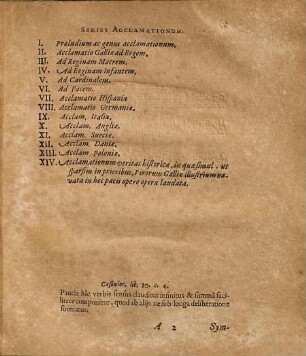 SERIES ACCLAMATIONUM.
I. Præludium ac genus acclamationum.
II. Acclamatio Galliæ ad Regem.
III. Ad Reginam Matrem.
IV. Ad Reginam Infantem.
V. Ad Cardinalem.
VI. Ad Pacem.
VII. Acclamatio Hispaniæ
VIII. Acclamatio Germaniæ.
IX. Acclam. Italiæ.
X. Acclam. Angliæ.
XI. Acclam. Sueciæ.
XII. Acclam. Daniæ.
XIII. Acclam. Poloniæ.
XIV. Acclamationum veritas historica, in quâ simul, ut
sparsim in prioribus, Virorum Galliæ illustrium na-
vata in hoc pacis opere opera laudata.
Cassiodor. lib. 10. c. 4.
Paucis hîc verbis sensus clauditur infinitus & summâ faci-
litate componitur, quod ab alijs nec sub longa deliberatione
formatur.
A 2 Sym-